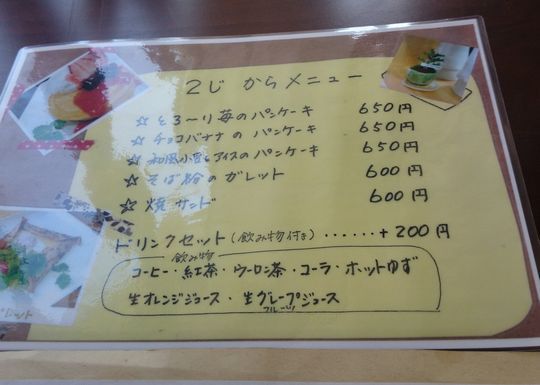 2じ からメニュー
☆ とろ〜り苺のパンケーキ 650円
☆ チョコバナナの パンケーキ 650円
☆ 和風小豆とアイスのパンケーキ 650円
☆ そば粉のガレット 600円
☆ 焼サンド 600円
ドリンクセット(飲み物付き)‥‥‥+200円
飲み物
コーヒー・紅茶・ウーロン茶・コーラ・ホットゆず
生オレンジジュース・生グレープジュース
フルーツ